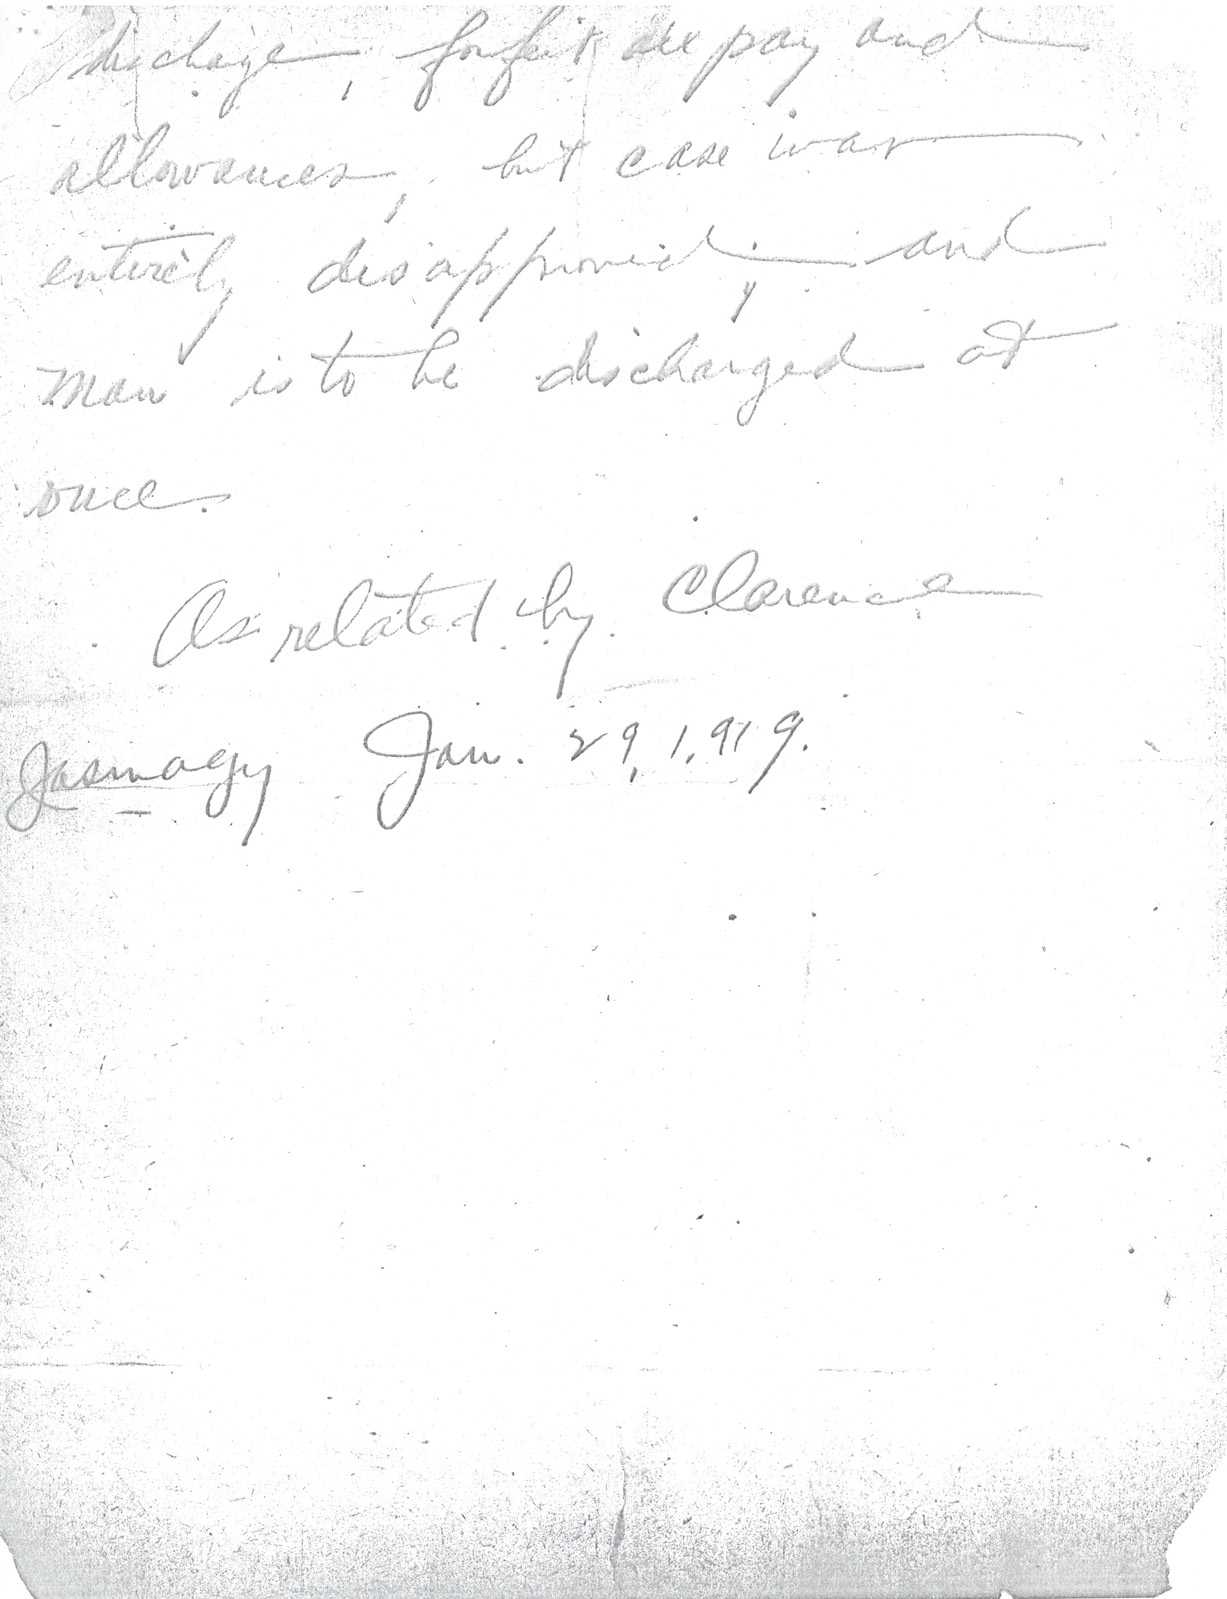 discharge, forfeit all pay and
allowances, but case was
entirely disapproved, and
man is to be discharged at
once.
As related by Clarence
Jasmagy Jan. 29, 1919.